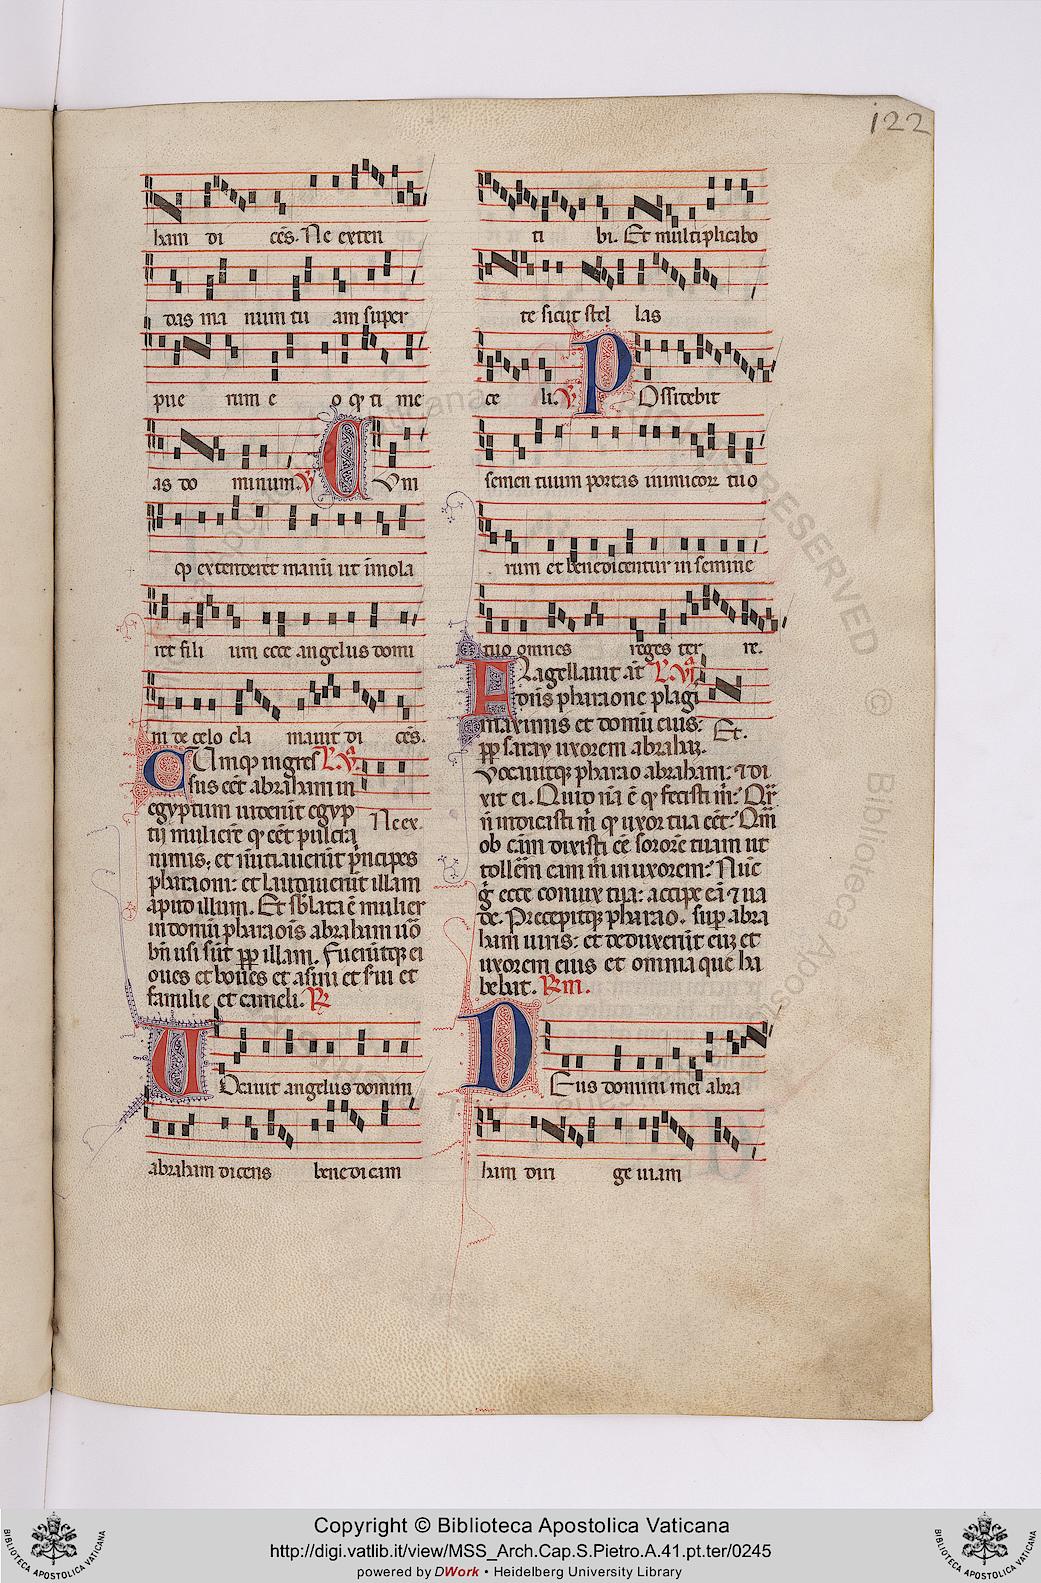 122
ham di ces. Ne exten
das ma num tu am super
pue rum e o qd ti me
as do minum. V Cum
qȝ extenderet manū ut īmola
ret fili um ecce angelus domi
ni de celo cla mauit di cēs.
Cumqȝ ingres
sus eēt abraham in
egyptum uiderūt egyp
Ne ex.
tii mulierē qd eēt pulcra
nimis: et nūtiauerūt prīncipes
pharaoni: et laudauerūt illam
apud illum. Et sblata ē mulier
in domū pharaōis abraham uō
bn̄ usi sūt pp illam. Fuerūtqȝ ei
oues et boues et asini et sui et
familie et cameli. R
Uocauit angelus domini
abraham dicens benedicam
ti bi. Et multiplicabo
te sicut stel las
ce li. V Possidebit
semen tuum portas inimicoꝝ tuo
rum et benedicentur in semine
tuo omnes reges ter re.
Flagellauit aūt
dn̄s pharaone plagi
maximis et domū eius:
Et.
pp saray uxorem abrahȝ.
Vocauitqȝ pharao abraham: ⁊ di
xit ei. Quid nā ē qd fecisti m̄: Qr̄
n̄ indicasti m̄ qd uxor tua eēt: Qm̄
ob cām dixisti eē sororē tuam ut
tollerē eam m̄ in uxorem: Nūc
g̊ ecce coniux tua: accipe eā ⁊ ua
de. Precepitqȝ pharao. sup abra
ham uiris: et deduxerūt euȝ et
uxorem eius et omnia que ha
bebat. Rm.
Deus domini mei abra
ham diri ge uiam
RESERVED © Biblioteca Apostolica Vaticana
Copyright © Biblioteca Apostolica Vaticana
http://digi.vatlib.it/view/MSS_Arch.Cap.S.Pietro.A.41.pt.ter/0245
powered by DWork • Heidelberg University Library
BIBLIOTECA APOSTOLICA VATICANA
BIBLIOTECA APOSTOLICA VATICANA